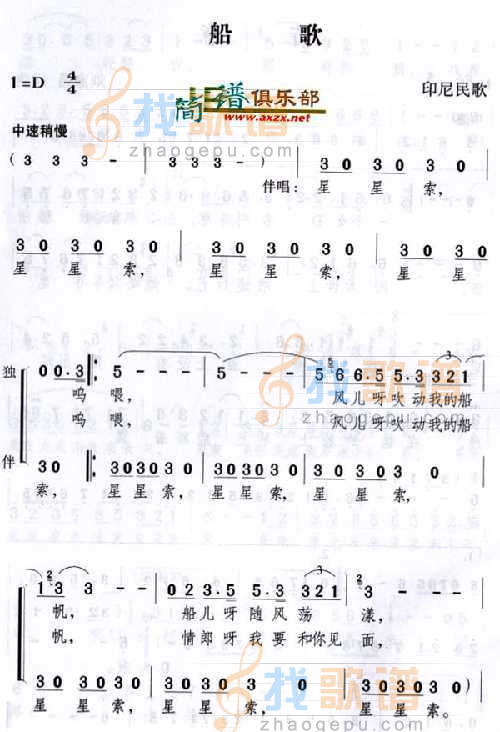 船 歌
1=D 4/4
简谱俱乐部
www.axzx.net
印尼民歌
中速稍慢
找歌谱
zhaogepu.com
( 3 3 3 - | 3 3 3 - ) | 3 0 3 0 3 0 |
伴唱: 星 星 索,
3 0 3 0 3 0 | 3 0 3 0 3 0 | 3 0 3 0
星 星 索, 星 星 索, 星 星
独 0 0 . 3 5 - - - | 5 - - - | 5 6 6 . 5 5 . 3 3 2 1
呜 喂, 风儿呀吹动我的船
呜 喂, 风儿呀吹动我的船
伴 3 0 3 0 3 0 3 0 | 3 0 3 0 3 0 | 3 0 3 0 3 0
索, 星星索, 星星索, 星星索,
找歌谱
zhaogepu.com
1 3 3 - - | 0 2 3 . 5 5 . 3 3 2 1 | 2 - - -
帆, 船儿呀随风荡 漾,
帆, 情郎呀我要和你见 面,
3 0 3 0 3 0 | 3 0 3 0 3 0 | 3 0 3 0 3 0 )
星 星 索, 星 星 索, 星星索。
找歌谱
zhaogepu.com